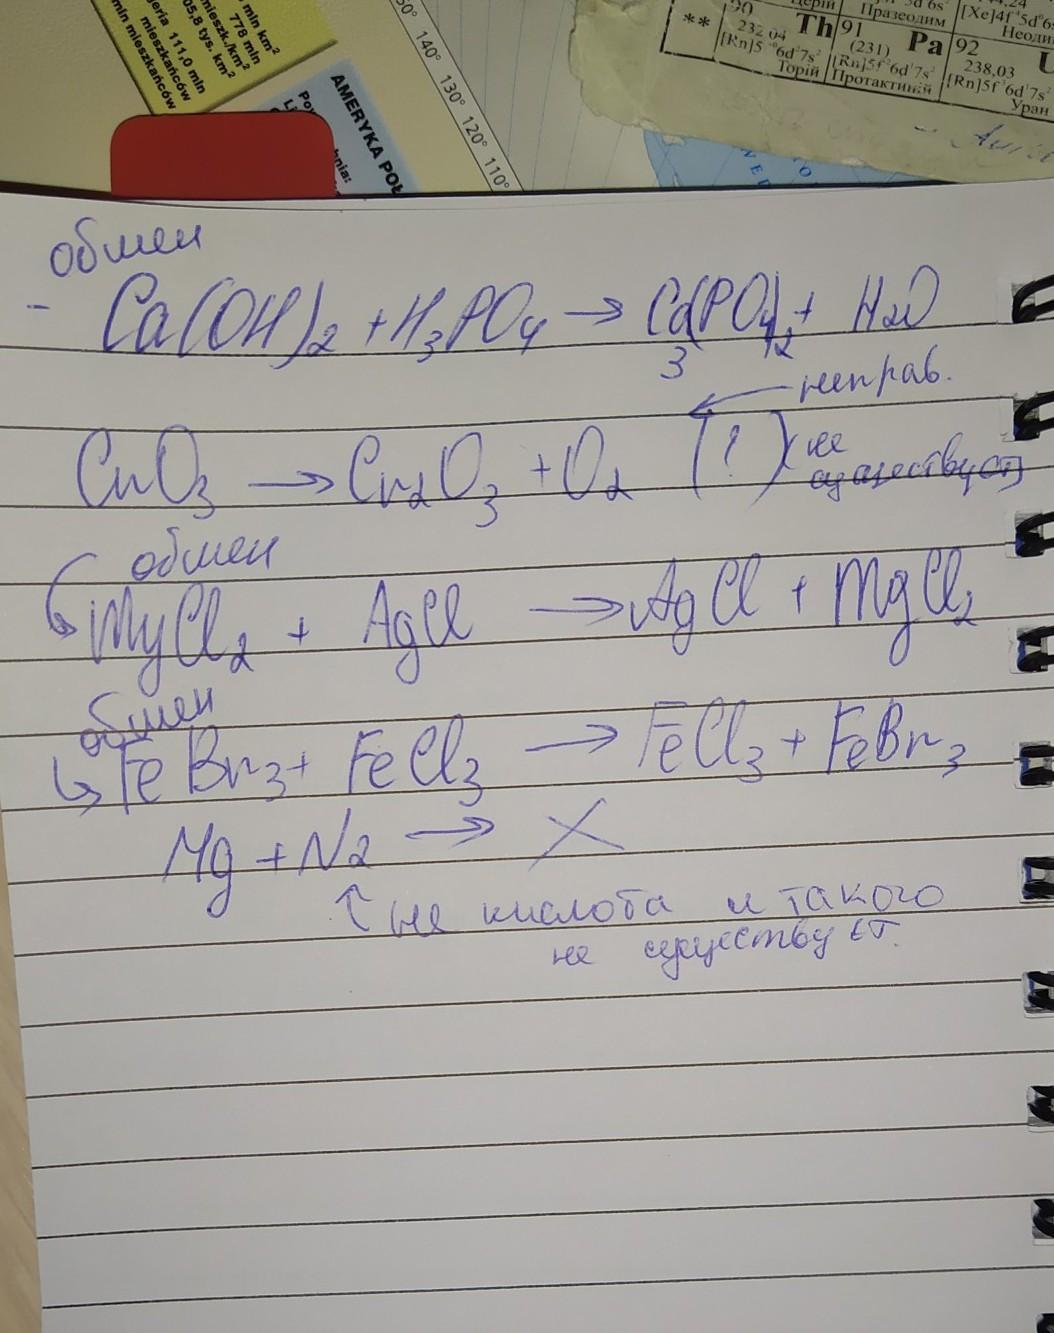 mln km²
778 mln
mieszk./km²
05,8 tys. km²
geria 111,0 mln
mieszkańców
mln mieszkańców
AMERYKA POŁ
140° 130° 120° 110°
** 90 Th 232,04 [Rn]5f⁰6d²7s² Торій
91 Pa (231) [Rn]5f²6d¹7s² Протактиній
92 U 238,03 [Rn]5f³6d¹7s² Уран
Церій Празеодим Неоди
обмен
- Ca(OH)₂ + H₃PO₄ → Ca₃(PO₄)₂ + H₂O
неправ.
CrO₃ → Cr₂O₃ + O₂ (?) (не
существует)
обмен
MgCl₂ + AgCl → AgCl + MgCl₂
обмен
FeBr₃ + FeCl₃ → FeCl₃ + FeBr₃
Mg + N₂ → X
↑ не кислота и такого
не существует.